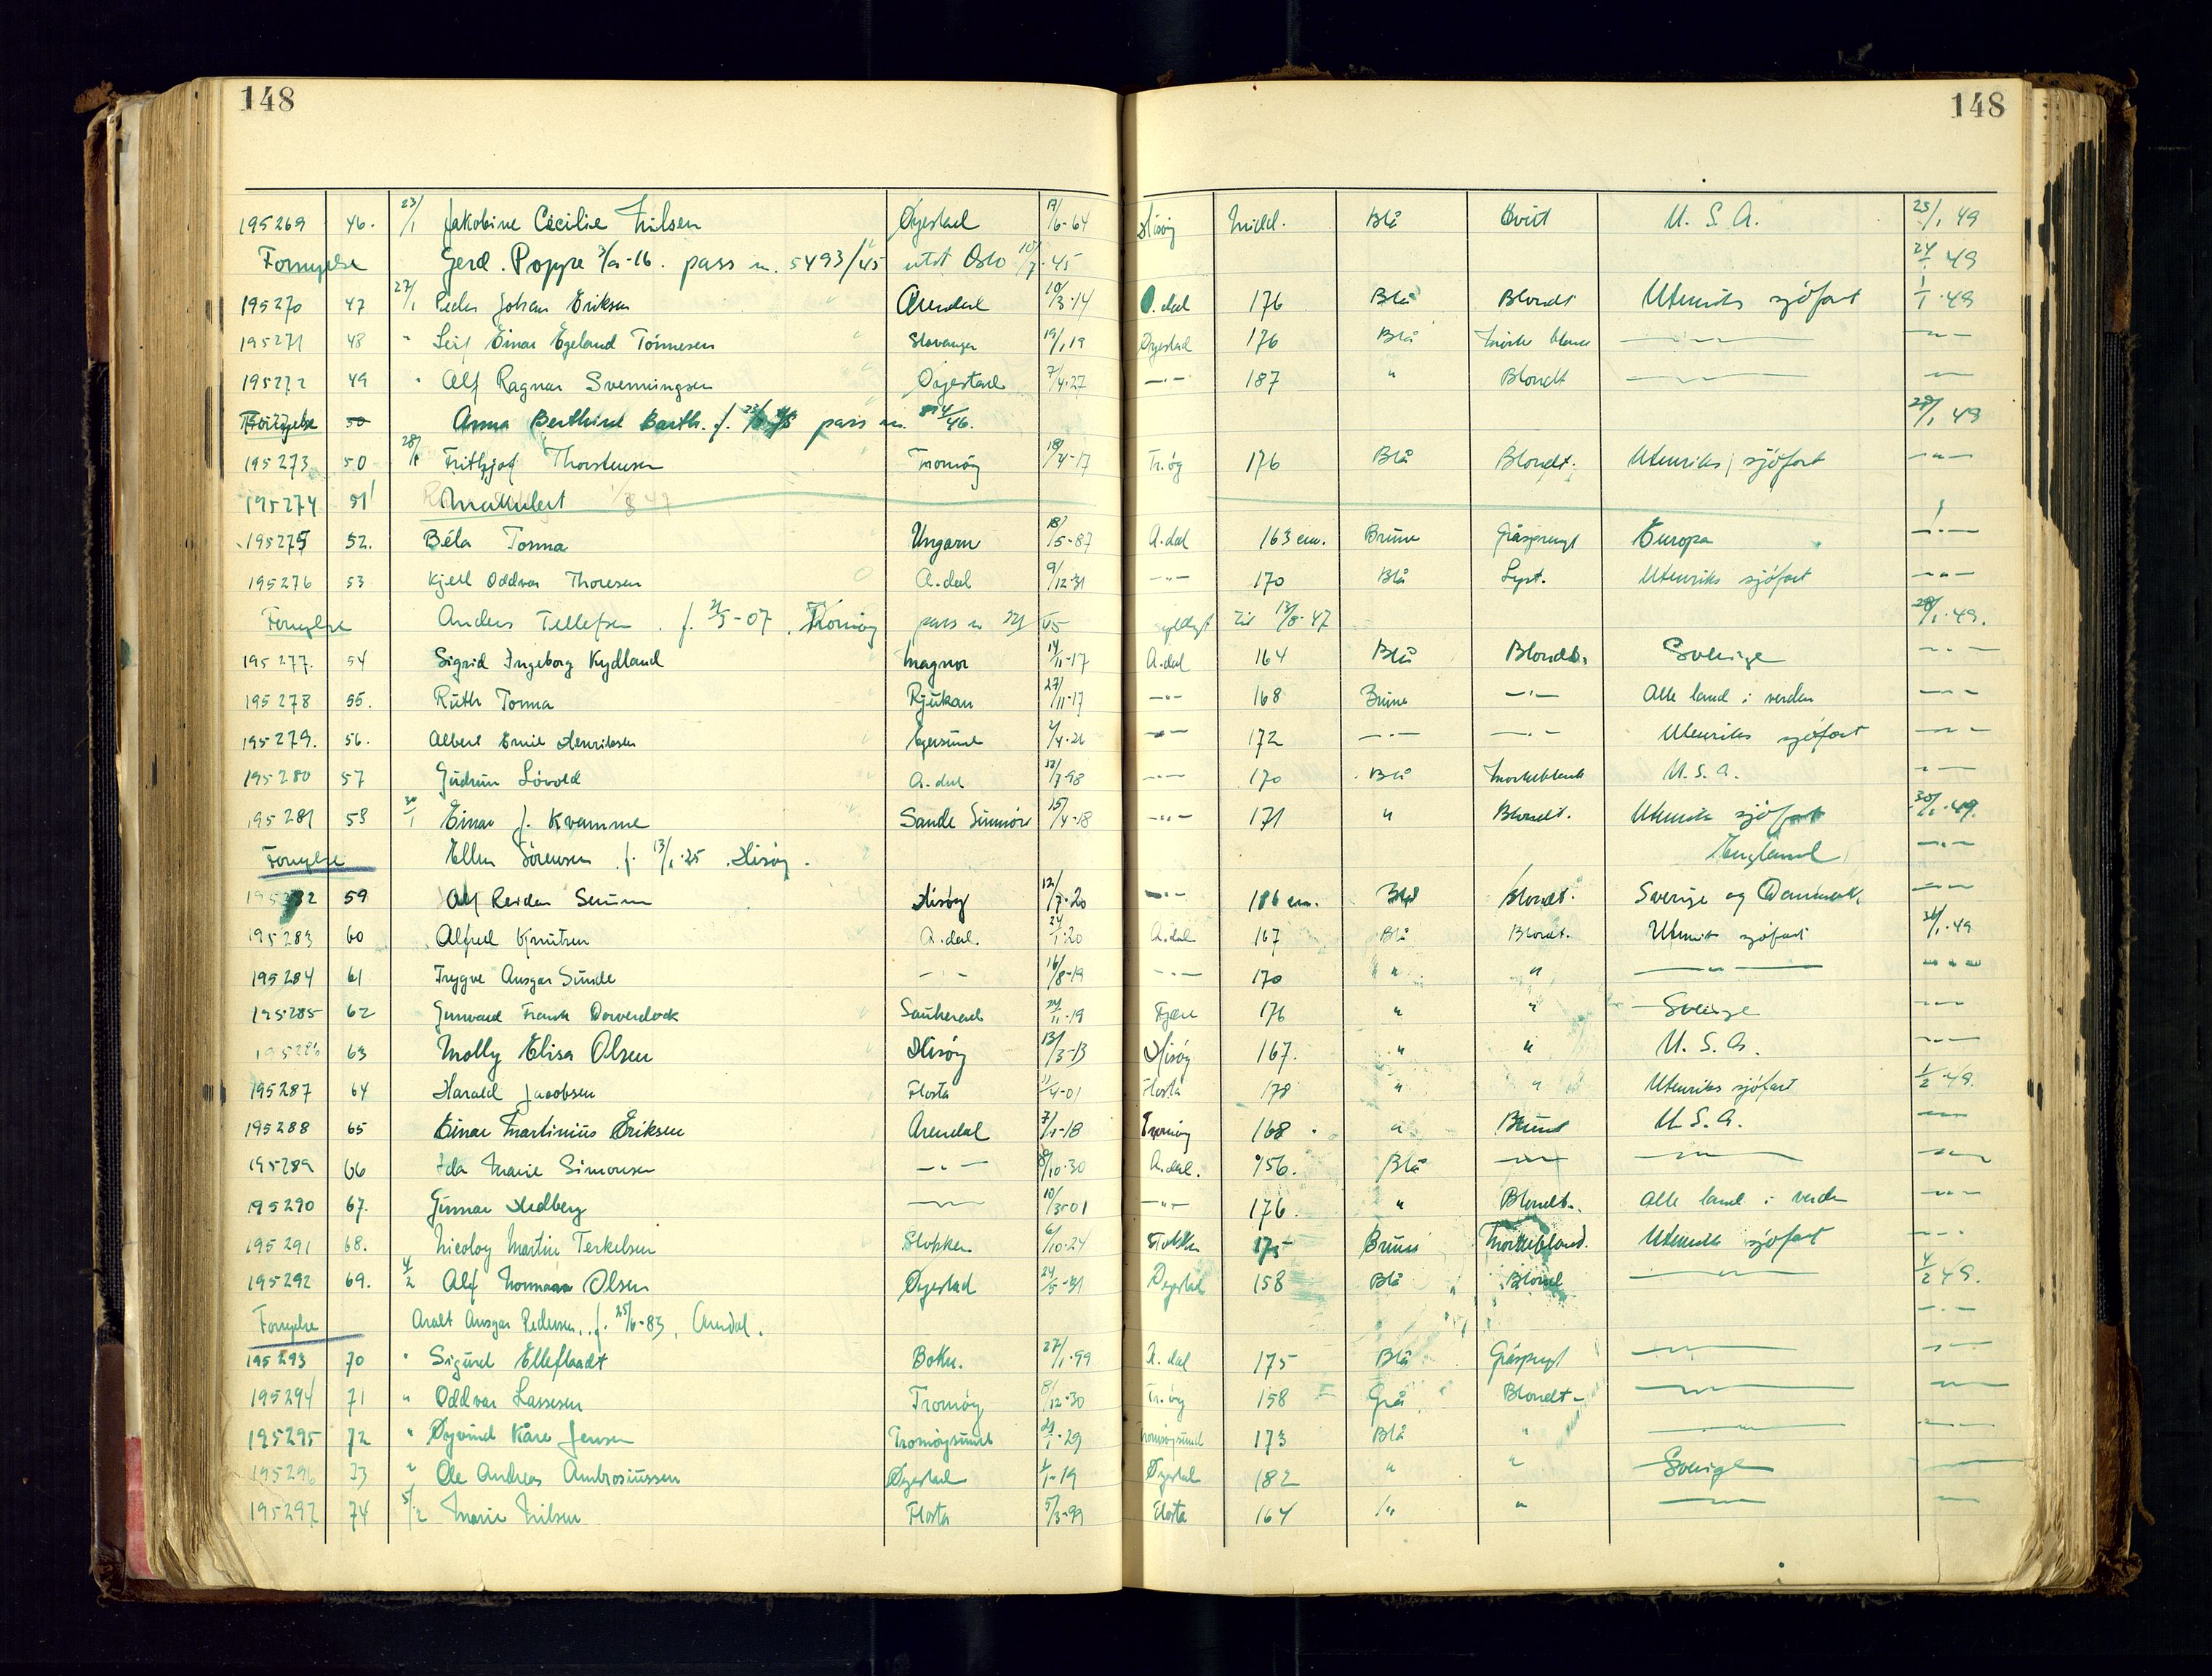 148 148
195269 46. 23/1 Jakobine Cecilie Nilsen Øyestad 17/6-64 Hisöy Midd. Blå Hvitt U. S. A. 23/1 49
Fornyelse Gerd. Poppe pass nr. 5493/45 utst Oslo 10/7-45 24/1 49
195270 47 27/1 Peder Johan Eriksen Arendal 10/3-14 A.dal 176 Blå Blondt Utenriks sjöfart 49
195271 48 " Leif Einar Egeland Tönnesen Stavanger 19/1 19 Øyestad 176 Blå Mörk blond —"— —"—
195272 49 " Alf Ragnar Svenningsen Øyestad 7/4-27 —"— 187 " Blondt —"— —"—
Fornyelse 50 Anna Berthine Barth. f. pass nr. 46. 28/1 49
195273 50 28/1 Frithjof Thorstensen Tromöy 18/4-17 Tr.öy 176 Blå Blondt. Utenriks sjöfart —"—
195274 51 Makulert
195275 52. Béla Torma Ungarn 18/5-87 A.dal 163 cm. Brune Gråsprengt Europa —"—
195276 53 Kjell Oddvar Thoresen A.dal 9/12-31 —"— 170 Blå Lyst. Utenriks sjöfart —"—
Fornyelse Anders Tellefsen f. -07 Tromöy pass nr 45 gyldigt til 13/8-47 28/1-49.
195277. 54 Sigrid Ingeborg Kydland Magnor 14/11-17 A.dal 164 Blå Blondt. Sverige —"—
195278 55. Ruth Torma Rjukan 27/11-17 —"— 168 Brune —"— Alle land i verden —"—
195279. 56. Albert Emil Henriksen Egersund 2/4-26 —"— 172 —"— —"— Utenriks sjöfart —"—
195280 57 Gudrun Lövold A.dal 12/7-98 —"— 170 Blå Mörkeblond U. S. A. —"—
195281 58 30/1 Einar J. Kvamme Sande Sunnöre 15/4-18 —"— 171 " Blondt. Utenriks sjöfart 30/1-49.
Fornyelse Ellen Sörensen f. 13/1-25 Hisöy. England —"—
195282 59 Alf Reidar Hisöy 12/7-20 —"— 186 cm. Blå Blondt. Sverige og Danmark —"—
195283 60 Alfred Knutsen A.dal. 24/1-20 A.dal 167 Blå Blondt. Utenriks sjöfart 31/1-49
195284 61 Trygve Ansgar Sunde —"— 16/8-19 —"— 170 " " —"— —"—
195285 62 Gunvald Frank Sauherad 11-19 Fjære 176 " " Sverige —"—
195286 63 Molly Elisa Olsen Hisöy 13/3-13 Hisöy 167. " " U. S. A. —"—
195287 64 Harald Jacobsen Flosta 11/4-01 Flosta 178 " " Utenriks sjöfart 1/2-49.
195288 65 Einar Martinius Eriksen Arendal 7/1-18 Tromöy 168 " Brunt U. S. A. —"—
195289 66 Ida Marie Simonsen —"— 8/10-30 A.dal. 156. Blå —"— —"— —"—
195290 67. Gunnar Hedberg —"— 10/3-01 —"— 176. " Blondt. Alle land i verden —"—
195291 68. Nicolay Martin Terkelsen Stokken 6/10-24 Stokken 175 Brune Mörkeblond. Utenriks sjöfart —"—
195292 69. 4/2 Alf Normann Olsen Øyestad 24/5-31 Øyestad 158 Blå Blond —"— 4/2 49.
Fornyelse Aralt Ansgar Pedersen, f. 25/6-83, Arendal. —"—
195293 70 " Sigurd Elleflaadt Bokn. 27/1-99 A.dal 175 Blå Gråsprengt —"— —"—
195294 71 " Oddvar Lassesen Tromöy 8/12-30 Tr.öy 158 Grå Blondt —"— —"—
195295 72 " Øyvind Kåre Jensen Tromöysund 1-29 Tromöysund 173 Blå " —"— —"—
195296 73 " Ole Andreas Ambrosiussen Øyestad 1-19 Øyestad 182 " " Sverige —"—
195297 74 5/2 Marie Nilsen Flosta 5/3-99 Flosta 164 " " —"— —"—